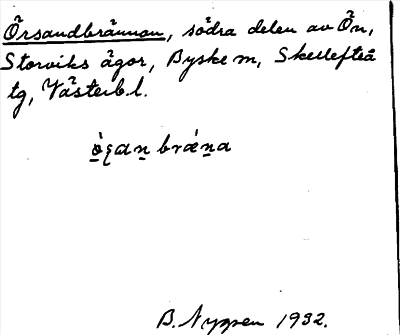 Örsandbrännan, södra delen av Ön,
Storviks ägor, Byske m, Skellefteå
tg, Västerb.l.
B. Nygren 1932.